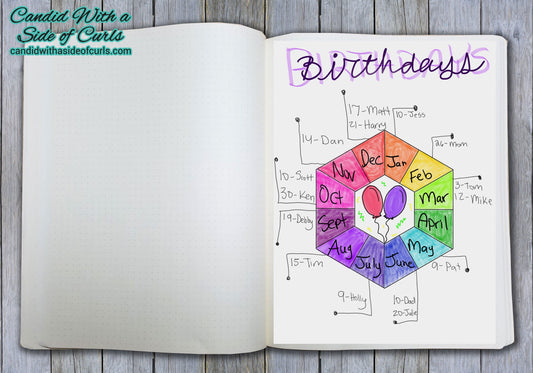 Candid With a
Side of Curls
candidwithasideofcurls.com
BIRTHDAYS
Birthdays
17-Matt
21-Harry
10-Jess
14-Dan
26-mom
10-Scott
30-Ken
3-Tom
12-Mike
19-Debby
15-Tim
9-Pat
9-Holly
10-Dad
20-Julie
Dec
Jan
Nov
Feb
Oct
Mar
Sept
April
Aug
May
July
June